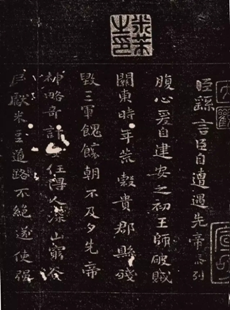 臣繇言臣自遭遇先帝忝列
腹心爰自建安之初王師破賊
關東時年荒穀貴郡縣殘
毀三軍餽饟朝不及夕先帝
神略奇計委任得人深山窮谷
民獻米豆道路不絕遂使強